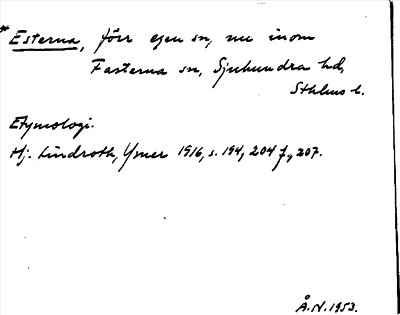 * Esterna, förr egen sn, nu inom
Fasterna sn, Sjuhundra hd,
Sthlms l.
Etymologi.
Hj. Lindroth, Ymer 1916, s. 194, 204 f., 207.
Å.N. 1953.